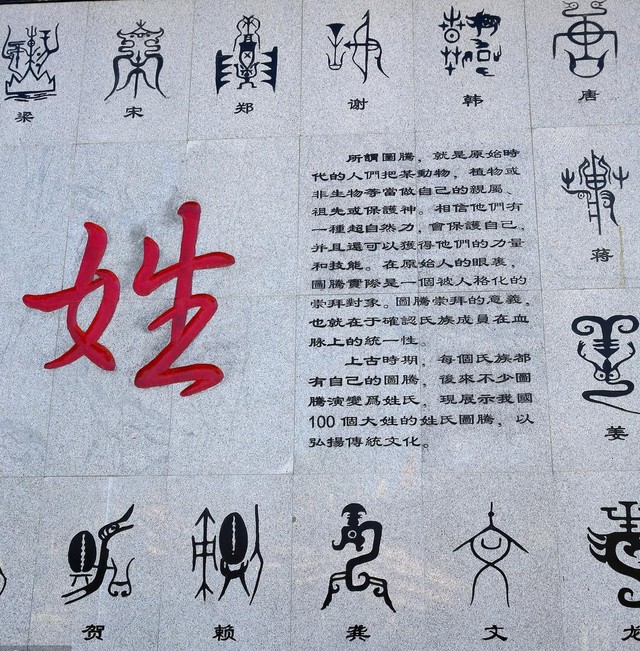 梁
宋
郑
谢
韩
唐
姓
所謂圖騰，就是原始時
代的人們把某動物，植物或
非生物等當做自己的親屬、
祖先或保護神。相信他們有
一種超自然力，會保護自己，
并且還可以獲得他們的力量
和技能。在原始人的眼裏，
圖騰實際是一個被人格化的
崇拜對象。圖騰崇拜的意義，
也就在于確認氏族成員在血
脉上的統一性。
上古時期，每個氏族都
有自己的圖騰，後來不少圖
騰演變爲姓氏，現展示我國
100個大姓的姓氏圖騰，以
弘揚傳統文化。
蒋
姜
贺
赖
龚
文
龙